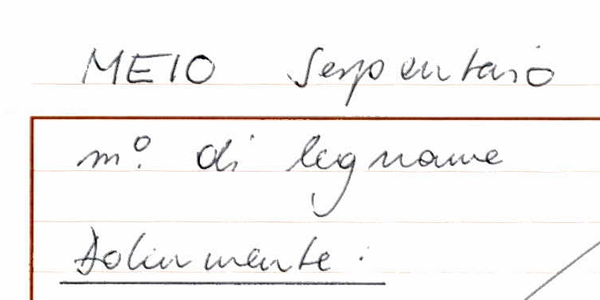 MEIO Serpentario
m.º di legname
Dolcemente.